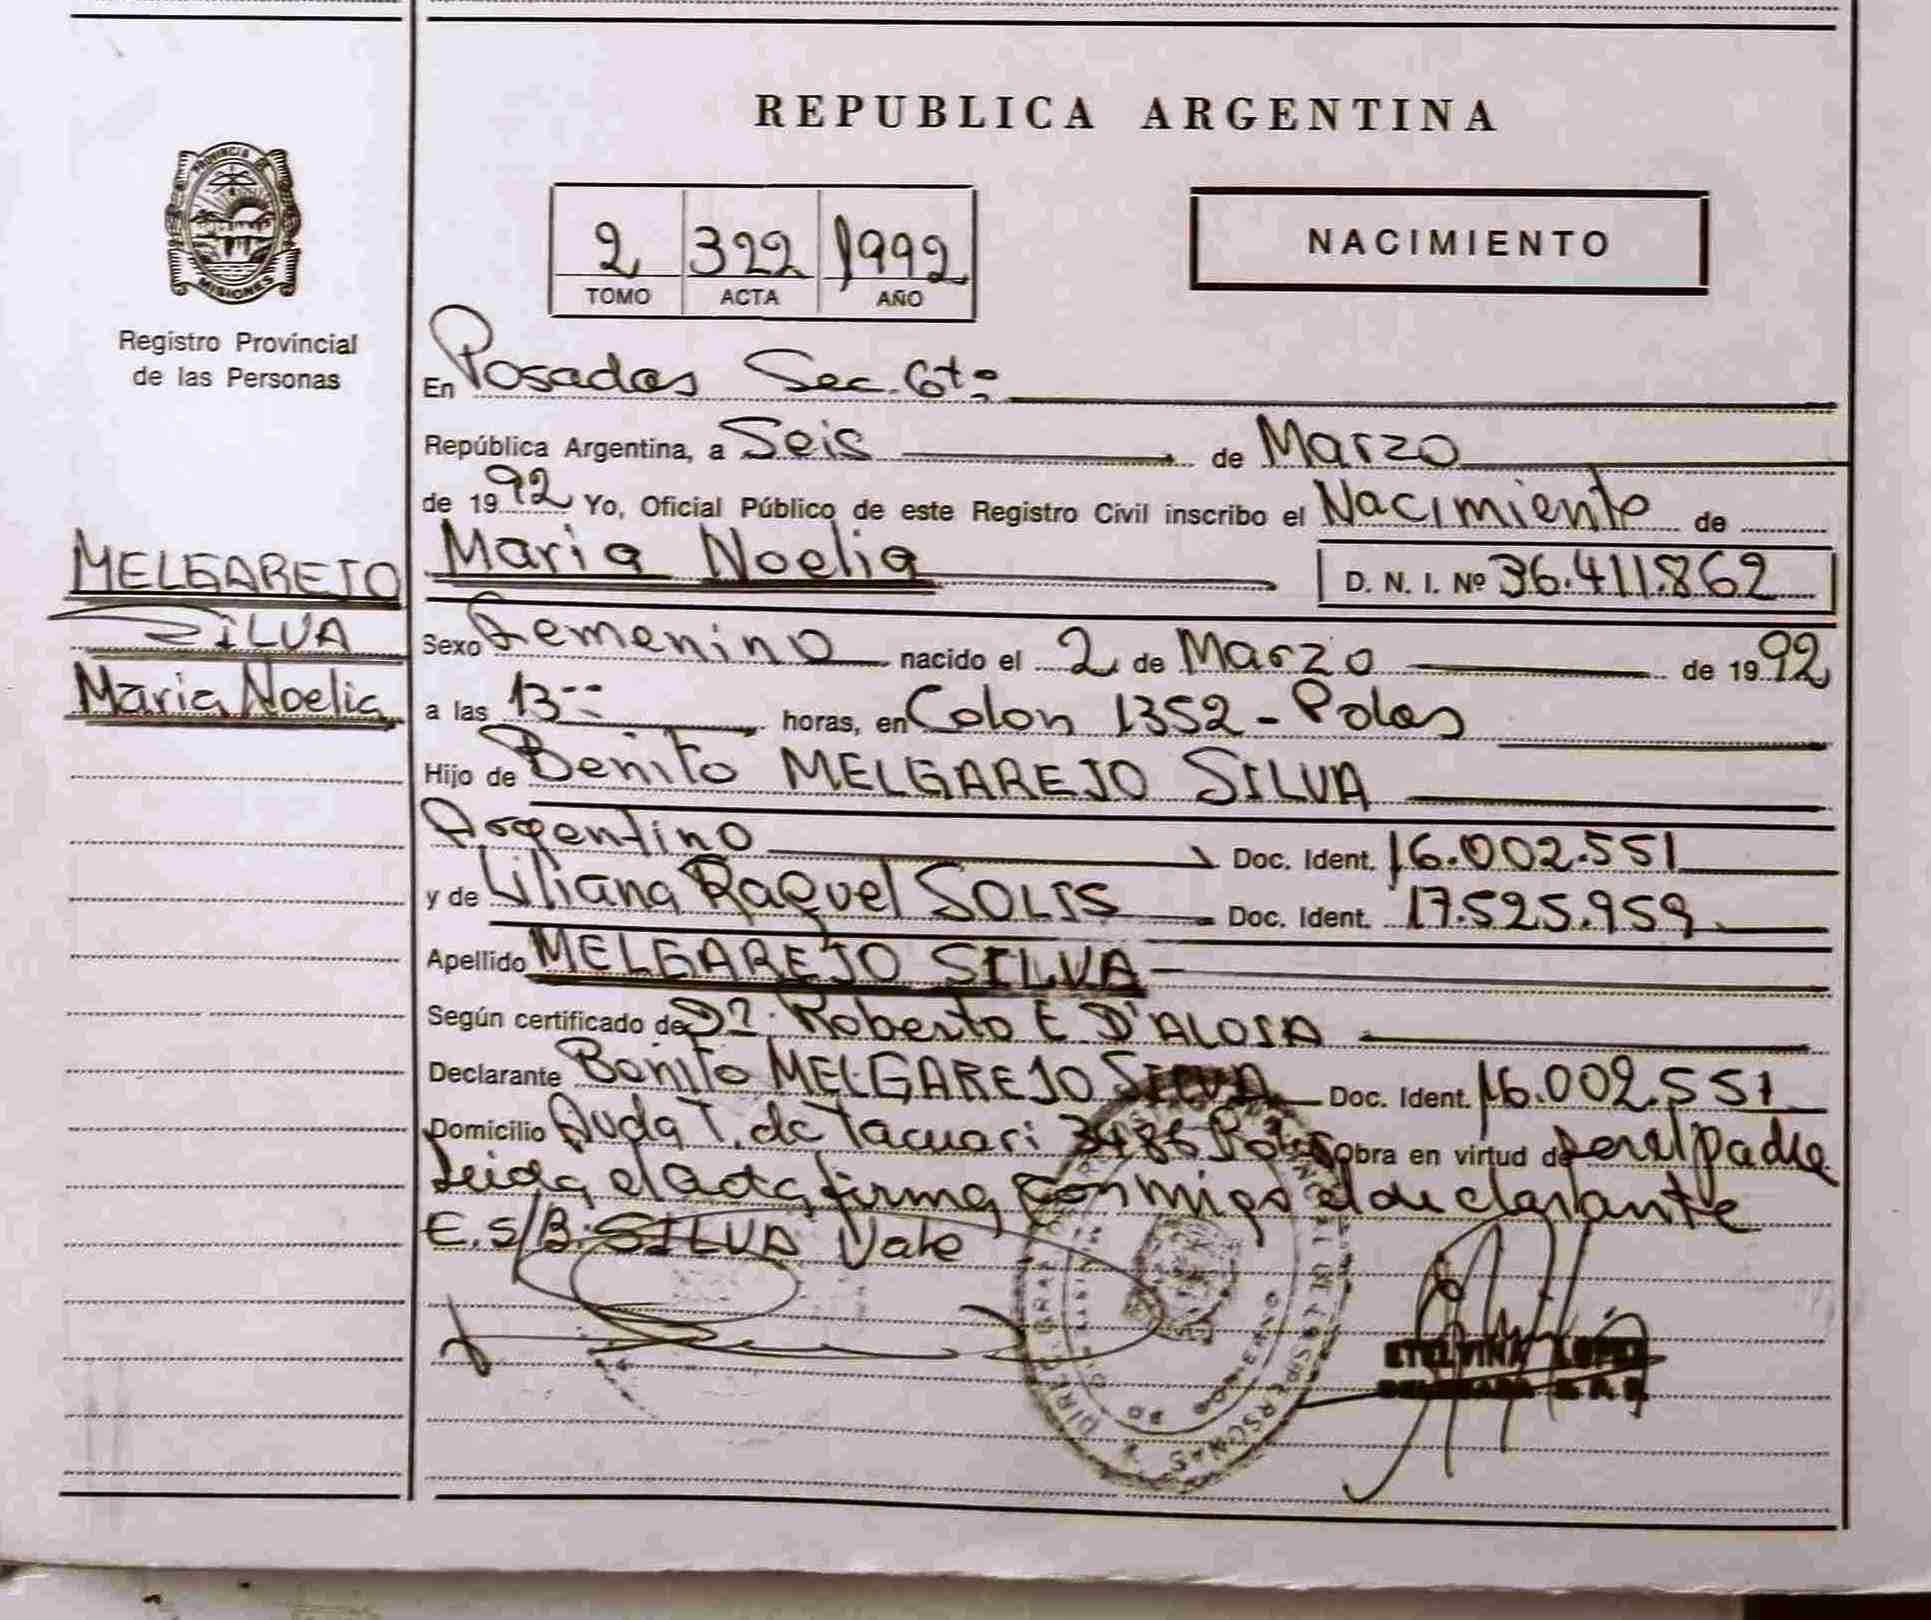 REPUBLICA ARGENTINA
PROVINCIA DE
MISIONES
Registro Provincial
de las Personas
2 322 1992
TOMO ACTA AÑO
NACIMIENTO
En Posadas Sec. 6ta
República Argentina, a Seis de Marzo
de 1992 Yo, Oficial Público de este Registro Civil inscribo el Nacimiento de
MELGAREJO
SILVA
Maria Noelia
Maria Noelia D. N. I. Nº 36.411.862
Sexo Femenino nacido el 2 de Marzo de 1992
a las 13 horas, en Colon 1352 - Pdas
Hijo de Benito MELGAREJO SILVA
Argentino Doc. Ident. 16.002.551
y de Liliana Raquel SOLIS Doc. Ident. 17.525.959
Apellido MELGAREJO SILVA
Según certificado de Dr. Roberto E D'ALOSA
Declarante Benito MELGAREJO SILVA Doc. Ident. 16.002.551
Domicilio Avda T. de Tacuari 3486 Pdas obra en virtud de ser el padre
Leida el acta firma conmigo el declarante
E. S/B. SILVA Vale
ETELVINA LOPEZ